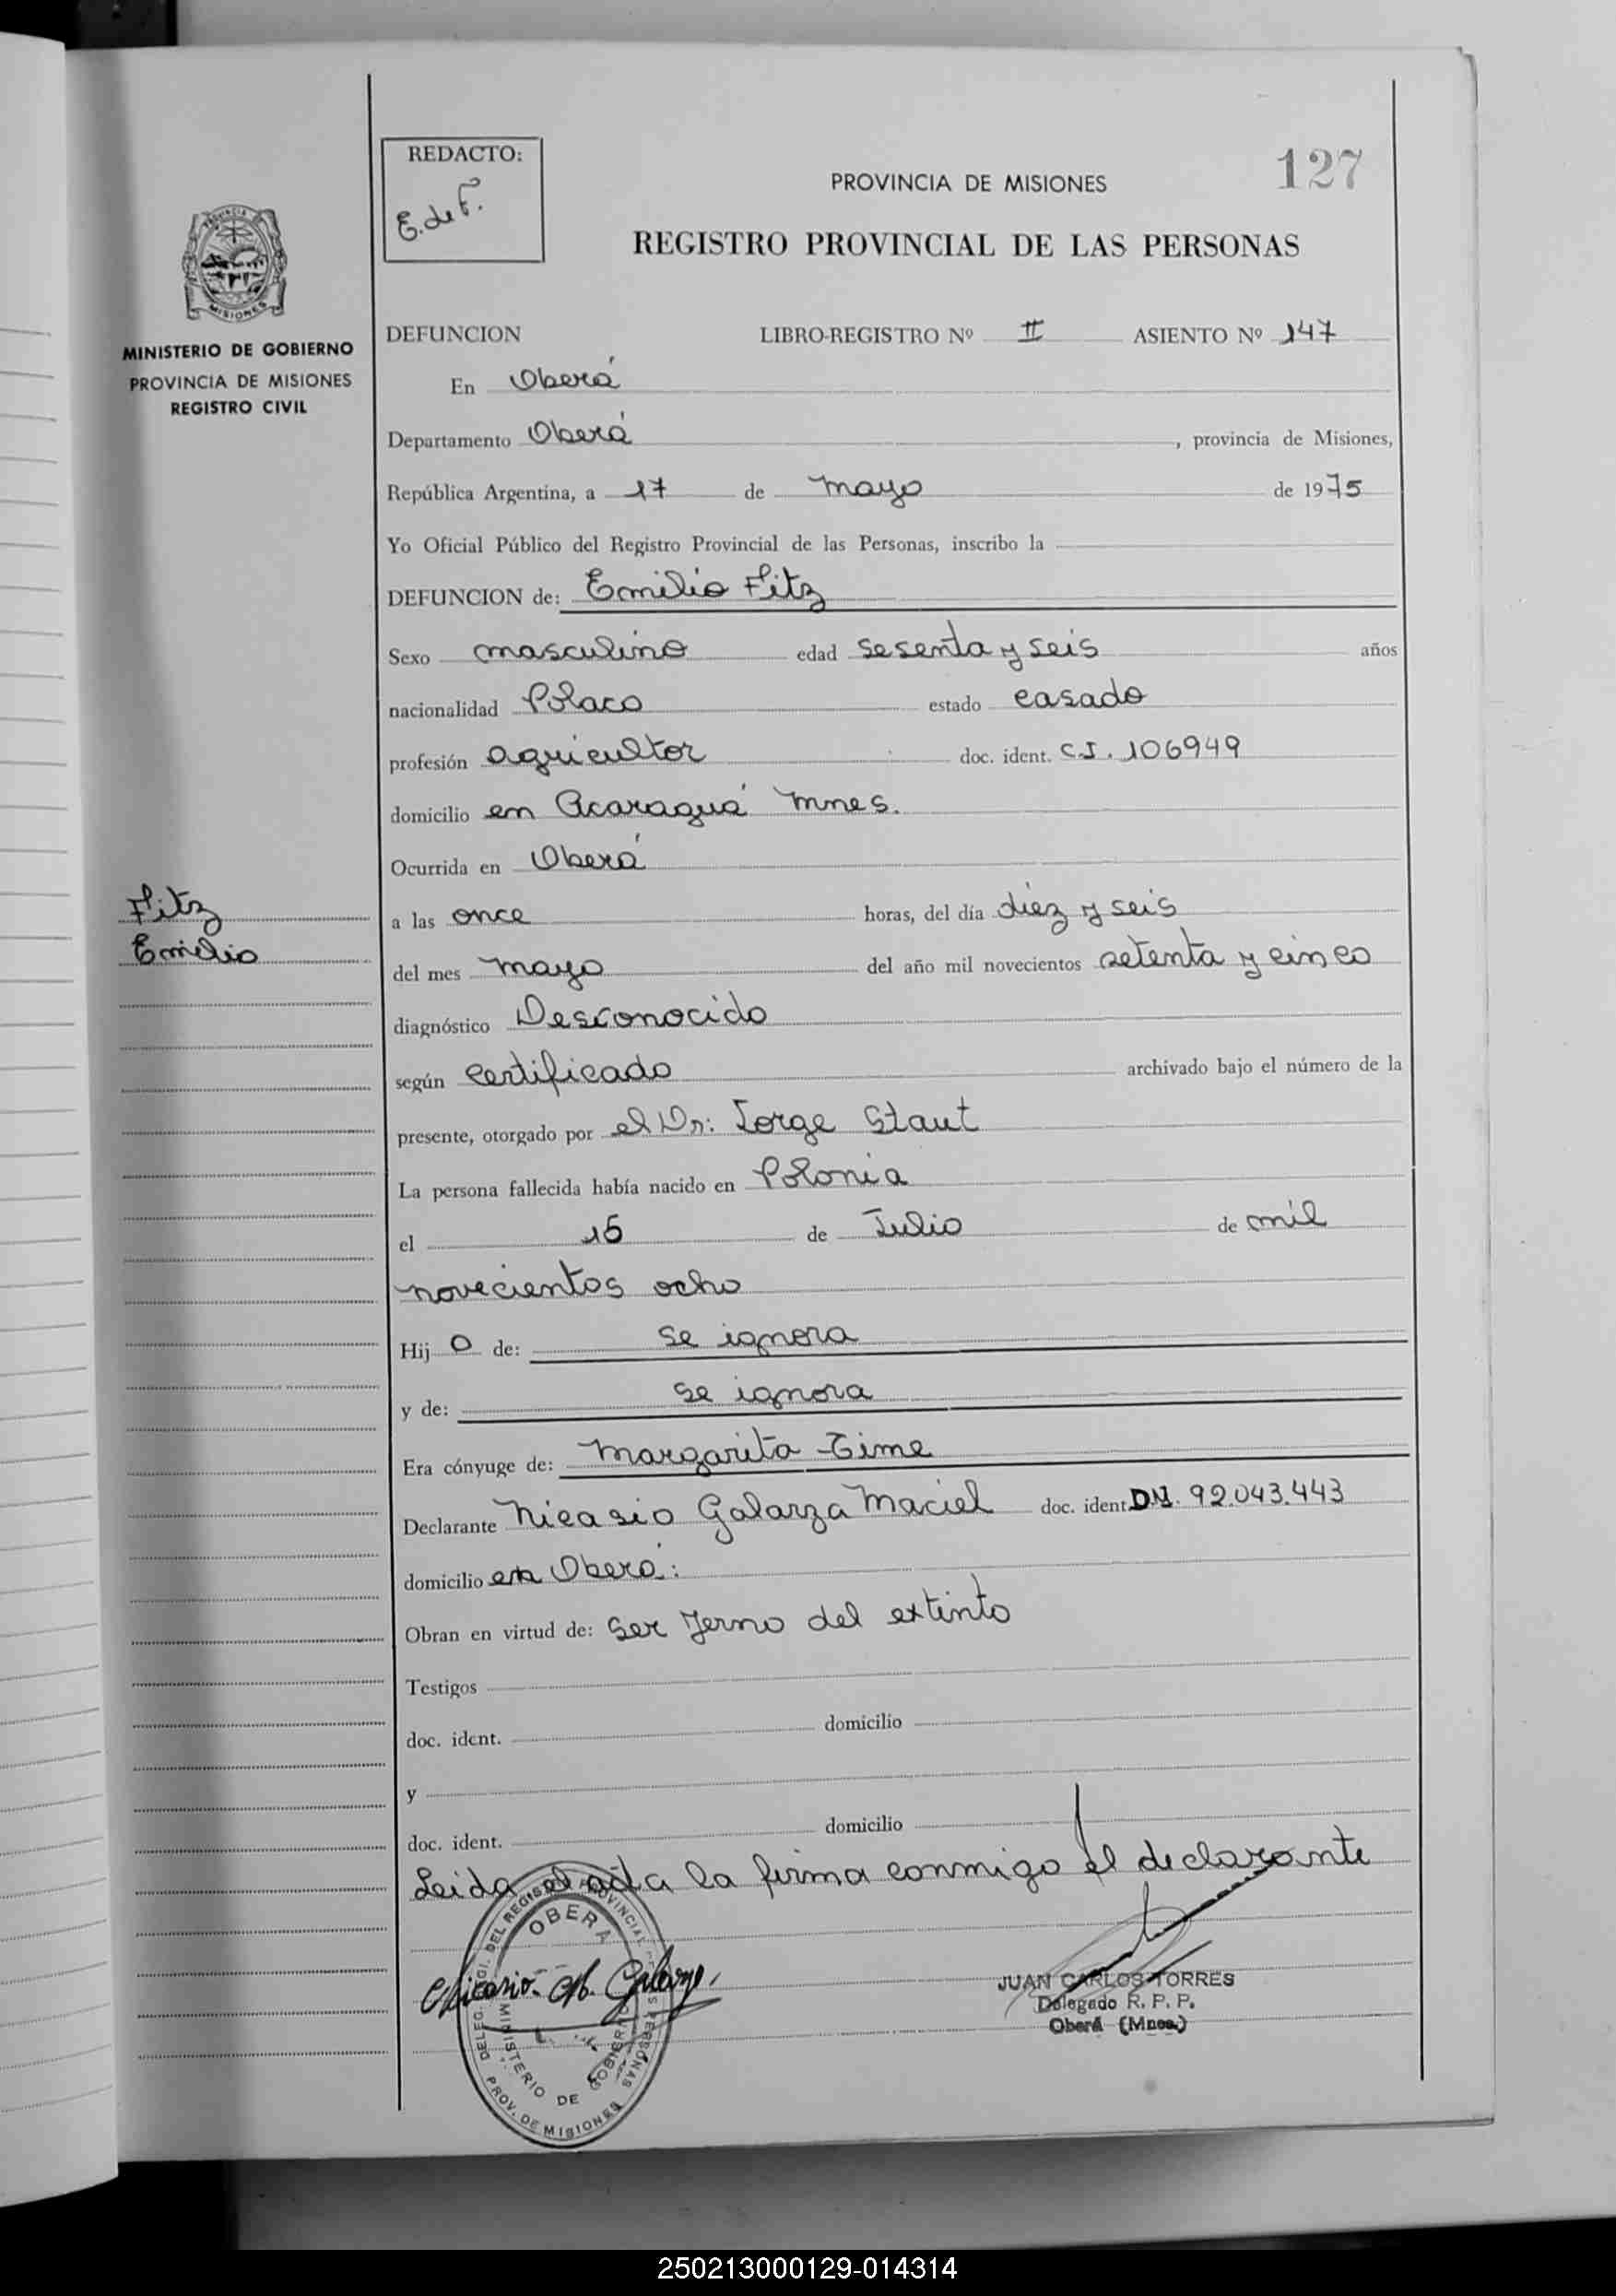 127
REDACTO:
E. de F.
PROVINCIA DE MISIONES
REGISTRO PROVINCIAL DE LAS PERSONAS
PROVINCIA
MISIONES
MINISTERIO DE GOBIERNO
PROVINCIA DE MISIONES
REGISTRO CIVIL
DEFUNCION LIBRO-REGISTRO Nº II ASIENTO Nº 147
En Oberá
Departamento Oberá, provincia de Misiones,
República Argentina, a 17 de mayo de 1975
Yo Oficial Público del Registro Provincial de las Personas, inscribo la
DEFUNCION de: Emilio Fitz
Sexo masculino edad sesenta y seis años
nacionalidad Polaco estado casado
profesión agricultor doc. ident. C.I. 106949
domicilio en Acaraguá Mnes.
Ocurrida en Oberá
Fitz
Emilio
a las once horas, del día diez y seis
del mes mayo del año mil novecientos setenta y cinco
diagnóstico Desconocido
según certificado archivado bajo el número de la
presente, otorgado por el Dr: Jorge Staut
La persona fallecida había nacido en Polonia
el 15 de Julio de mil
novecientos ocho
Hij o de: se ignora
y de: se ignora
Era cónyuge de: Margarita Time
Declarante Nicasio Galarza Maciel doc. ident. D.N. 92.043.443
domicilio en Oberá:
Obran en virtud de: Ser Yerno del extinto
Testigos
doc. ident. domicilio
y
doc. ident. domicilio
Leida el acta la firma conmigo el declarante
DELEG. DEL REGISTRO PROVINCIAL PERSONAS
OBERA
MINISTERIO DE GOBIERNO
PROV. DE MISIONES
Nicasio M. Galarza
JUAN CARLOS TORRES
Delegado R. P. P.
Oberá (Mnes.)
250213000129-014314